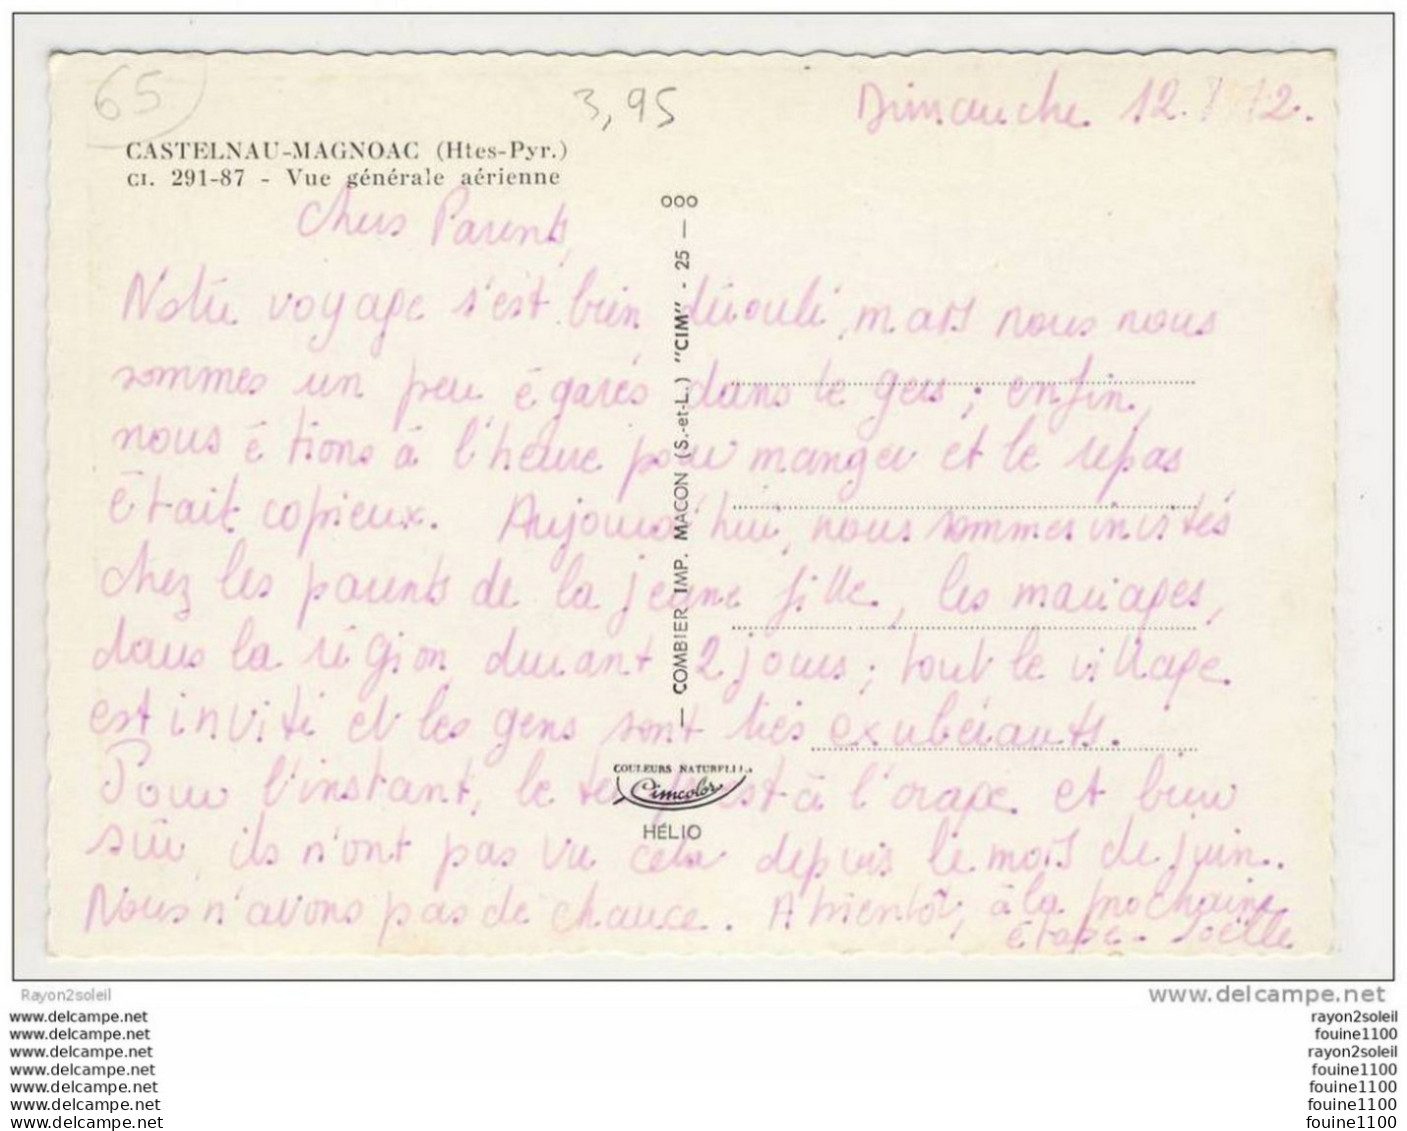 65
3,95
Dimanche 12.
CASTELNAU-MAGNOAC (Htes-Pyr.)
CI. 291-87 - Vue générale aérienne
Chers Parents,
Notre voyage s'est bien déroulé, mais nous nous
sommes un peu égarés dans le gers ; enfin,
nous étions à l'heure pour manger et le repas
était copieux. Aujourd'hui, nous sommes invités
chez les parents de la jeune fille, les mariages,
dans la région durant 2 jours ; tout le village
est invité et les gens sont très exubérants.
Pour l'instant, le temps est à l'orage et bien
sûr, ils n'ont pas vu cela depuis le mois de juin.
Nous n'avons pas de chance. A bientôt, à la prochaine
étape. Joëlle
COMBIER IMP. MACON (S.-et-L.) "CIM" - 25 — ooo
COULEURS NATURELLES
Cimcolor
HÉLIO
Rayon2soleil
www.delcampe.net
www.delcampe.net rayon2soleil
www.delcampe.net fouine1100
www.delcampe.net rayon2soleil
www.delcampe.net fouine1100
www.delcampe.net fouine1100
www.delcampe.net fouine1100
www.delcampe.net fouine1100